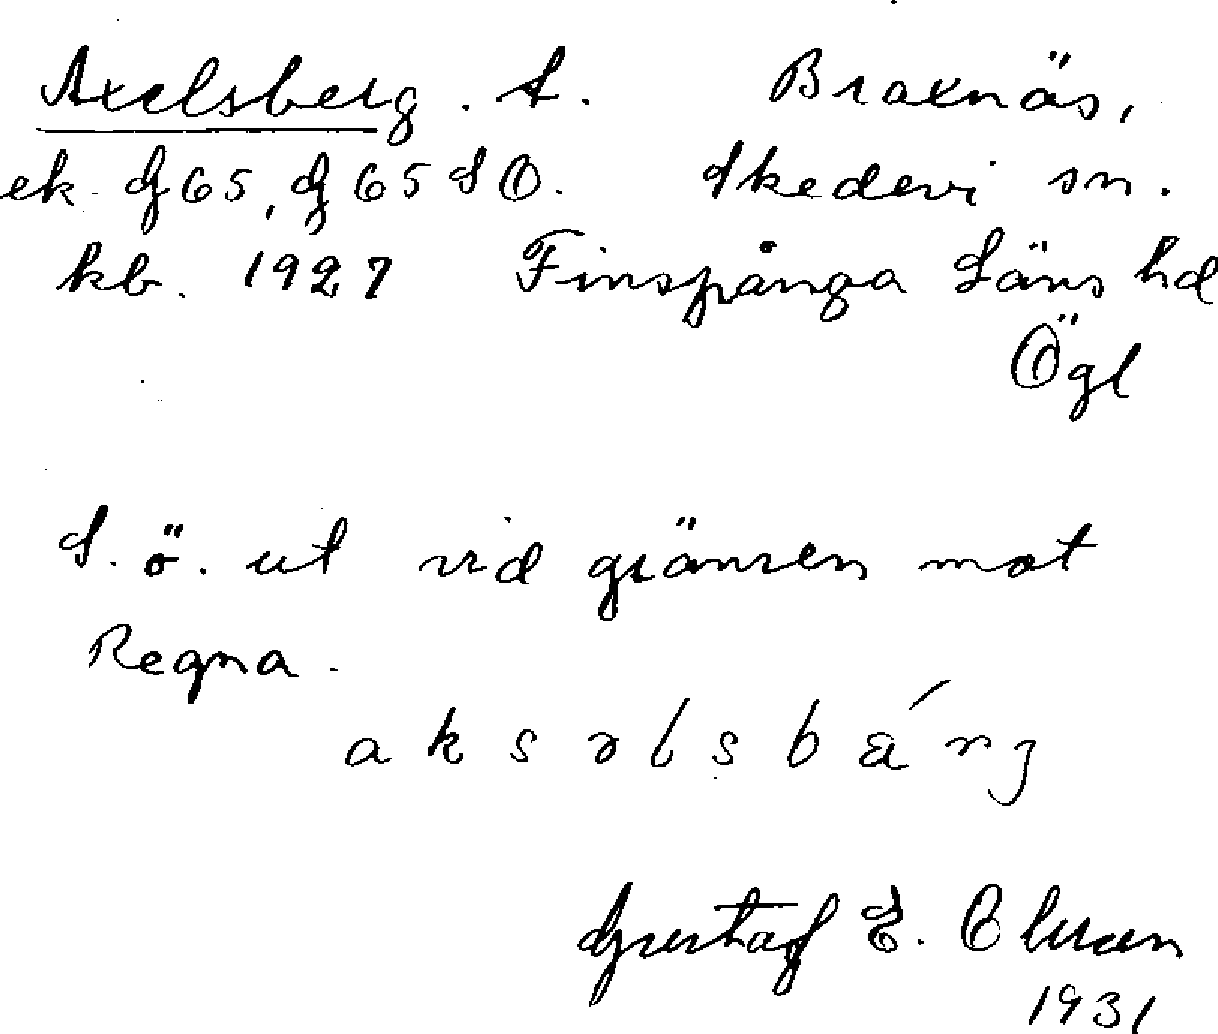 Axelsberg. t. Braxnäs,
ek. G65, G65 SO. Skedevi sn.
kb. 1927 Finspånga Läns hd
Ögl
S. ö. ut vid gränsen mot
Regna.
aksəlsbärj
Gustaf E. Olsson
1931